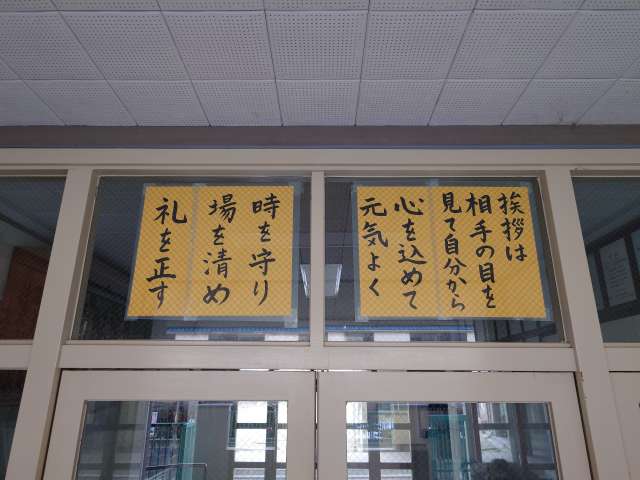 挨拶は
相手の目を
見て自分から
心を込めて
元気よく
時を守り
場を清め
礼を正す